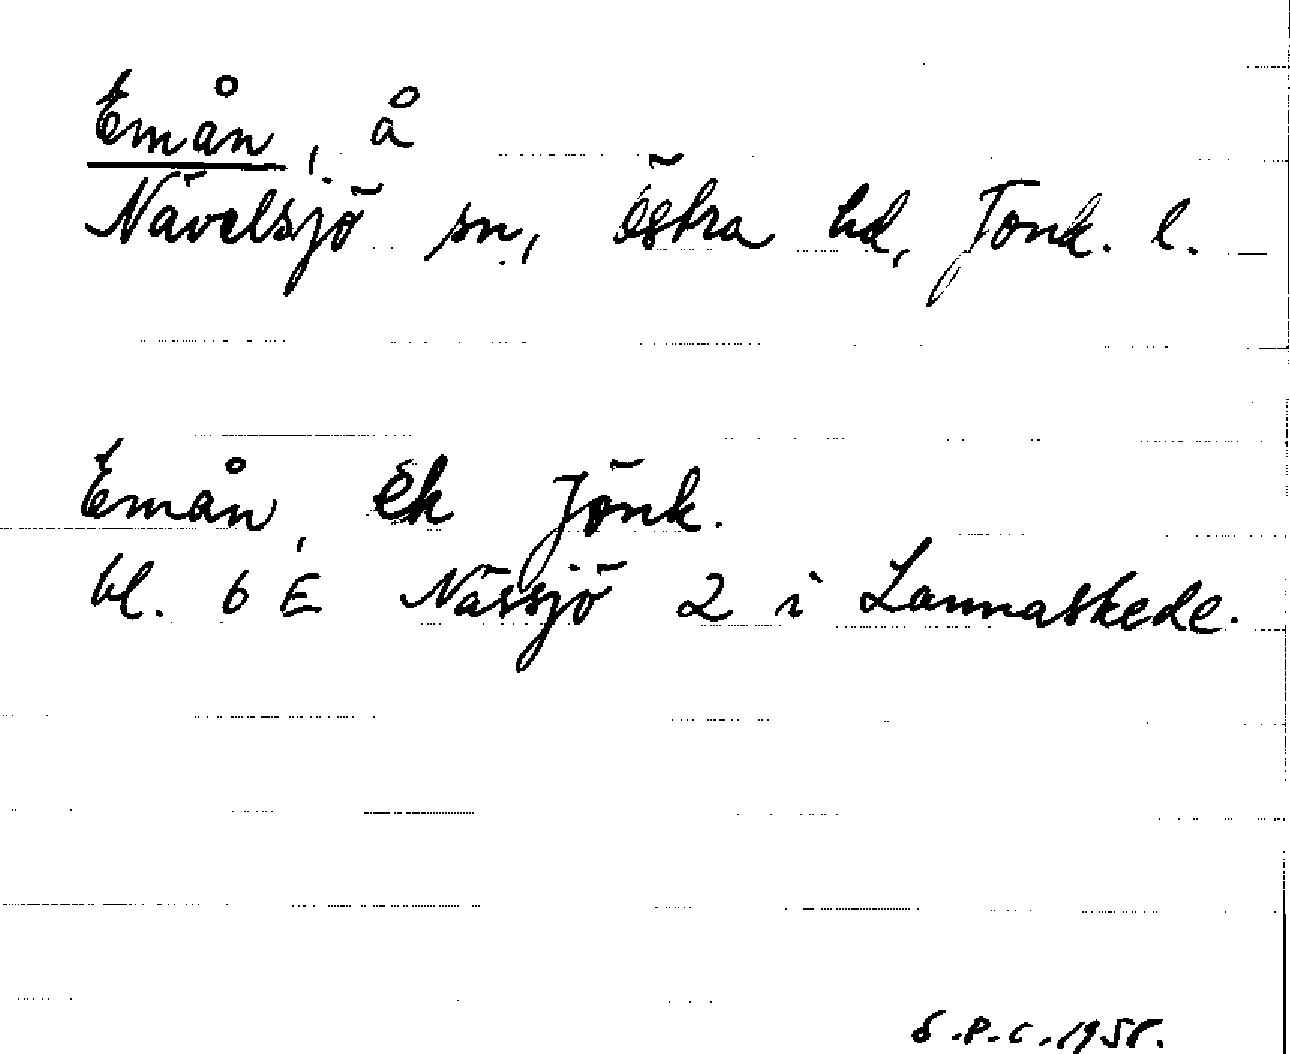 Emån, å
Nävelsjö sn, östra hd, Jönk. l.
Emån, ek Jönk.
bl. 6 E Nässjö 2 i Lannaskede.
S.P.C. 1955.